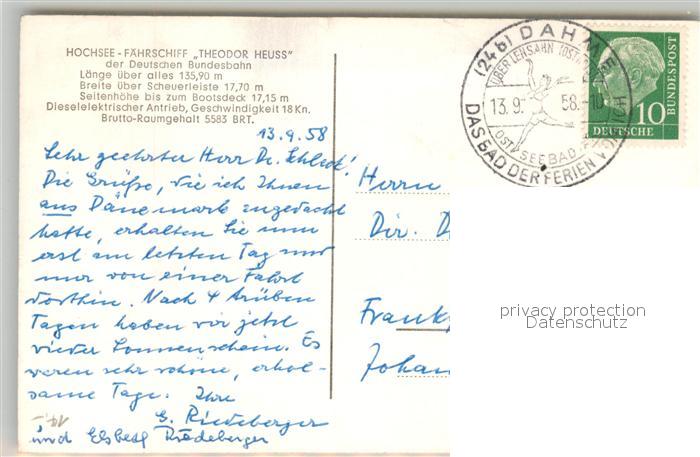 HOCHSEE-FÄHRSCHIFF „THEODOR HEUSS"
der Deutschen Bundesbahn
Länge über alles 135,90 m
Breite über Scheuerleiste 17,70 m
Seitenhöhe bis zum Bootsdeck 17,15 m
Dieselelektrischer Antrieb, Geschwindigkeit 18 Kn.
Brutto-Raumgehalt 5583 BRT.
13.9.58
Sehr geehrter Herr Dr.
Die Grüße, die ich Ihnen
aus Dänemark zugedacht
hatte, erhalten Sie nun
erst am letzten Tag und
nur von einer Fahrt
dorthin. Nach 4 trüben
Tagen haben wir jetzt
wieder Sonnenschein. Es
waren sehr schöne, erhol-
same Tage. Ihre
G. Riedeberger
und Elsbeth Riedeberger
Herrn
Dir. D
Frankf
Johan
(24b) DAHME
ÜBER LENSAHN (OST
13.9. 58.-10
OSTSEEBAD
DAS BAD DER FERIEN
10
DEUTSCHE
BUNDESPOST
privacy protection
Datenschutz